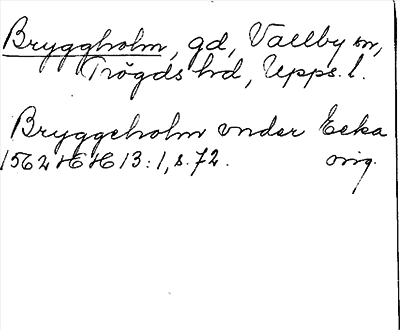 Bryggholm, gd, Vallby sn,
Trögds hd, Upps. l.
Bryggeholm vnder Ecka
1562 HH 13:1, s. 72. orig.